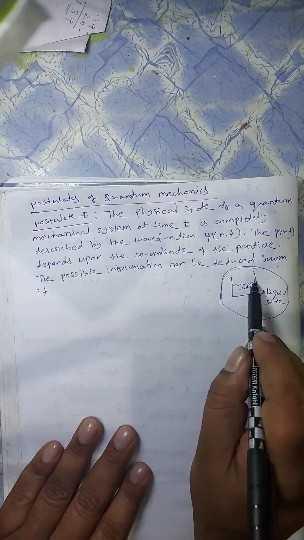 postulates of Quantum mechanics
postulate I : The Physical state of a quantum
mechanical system at time t is completely
described by the wavefunction ψ(r,t). The ψ(r,t)
depends upon the coordinate of the particle.
The possible information can be deduced from
it